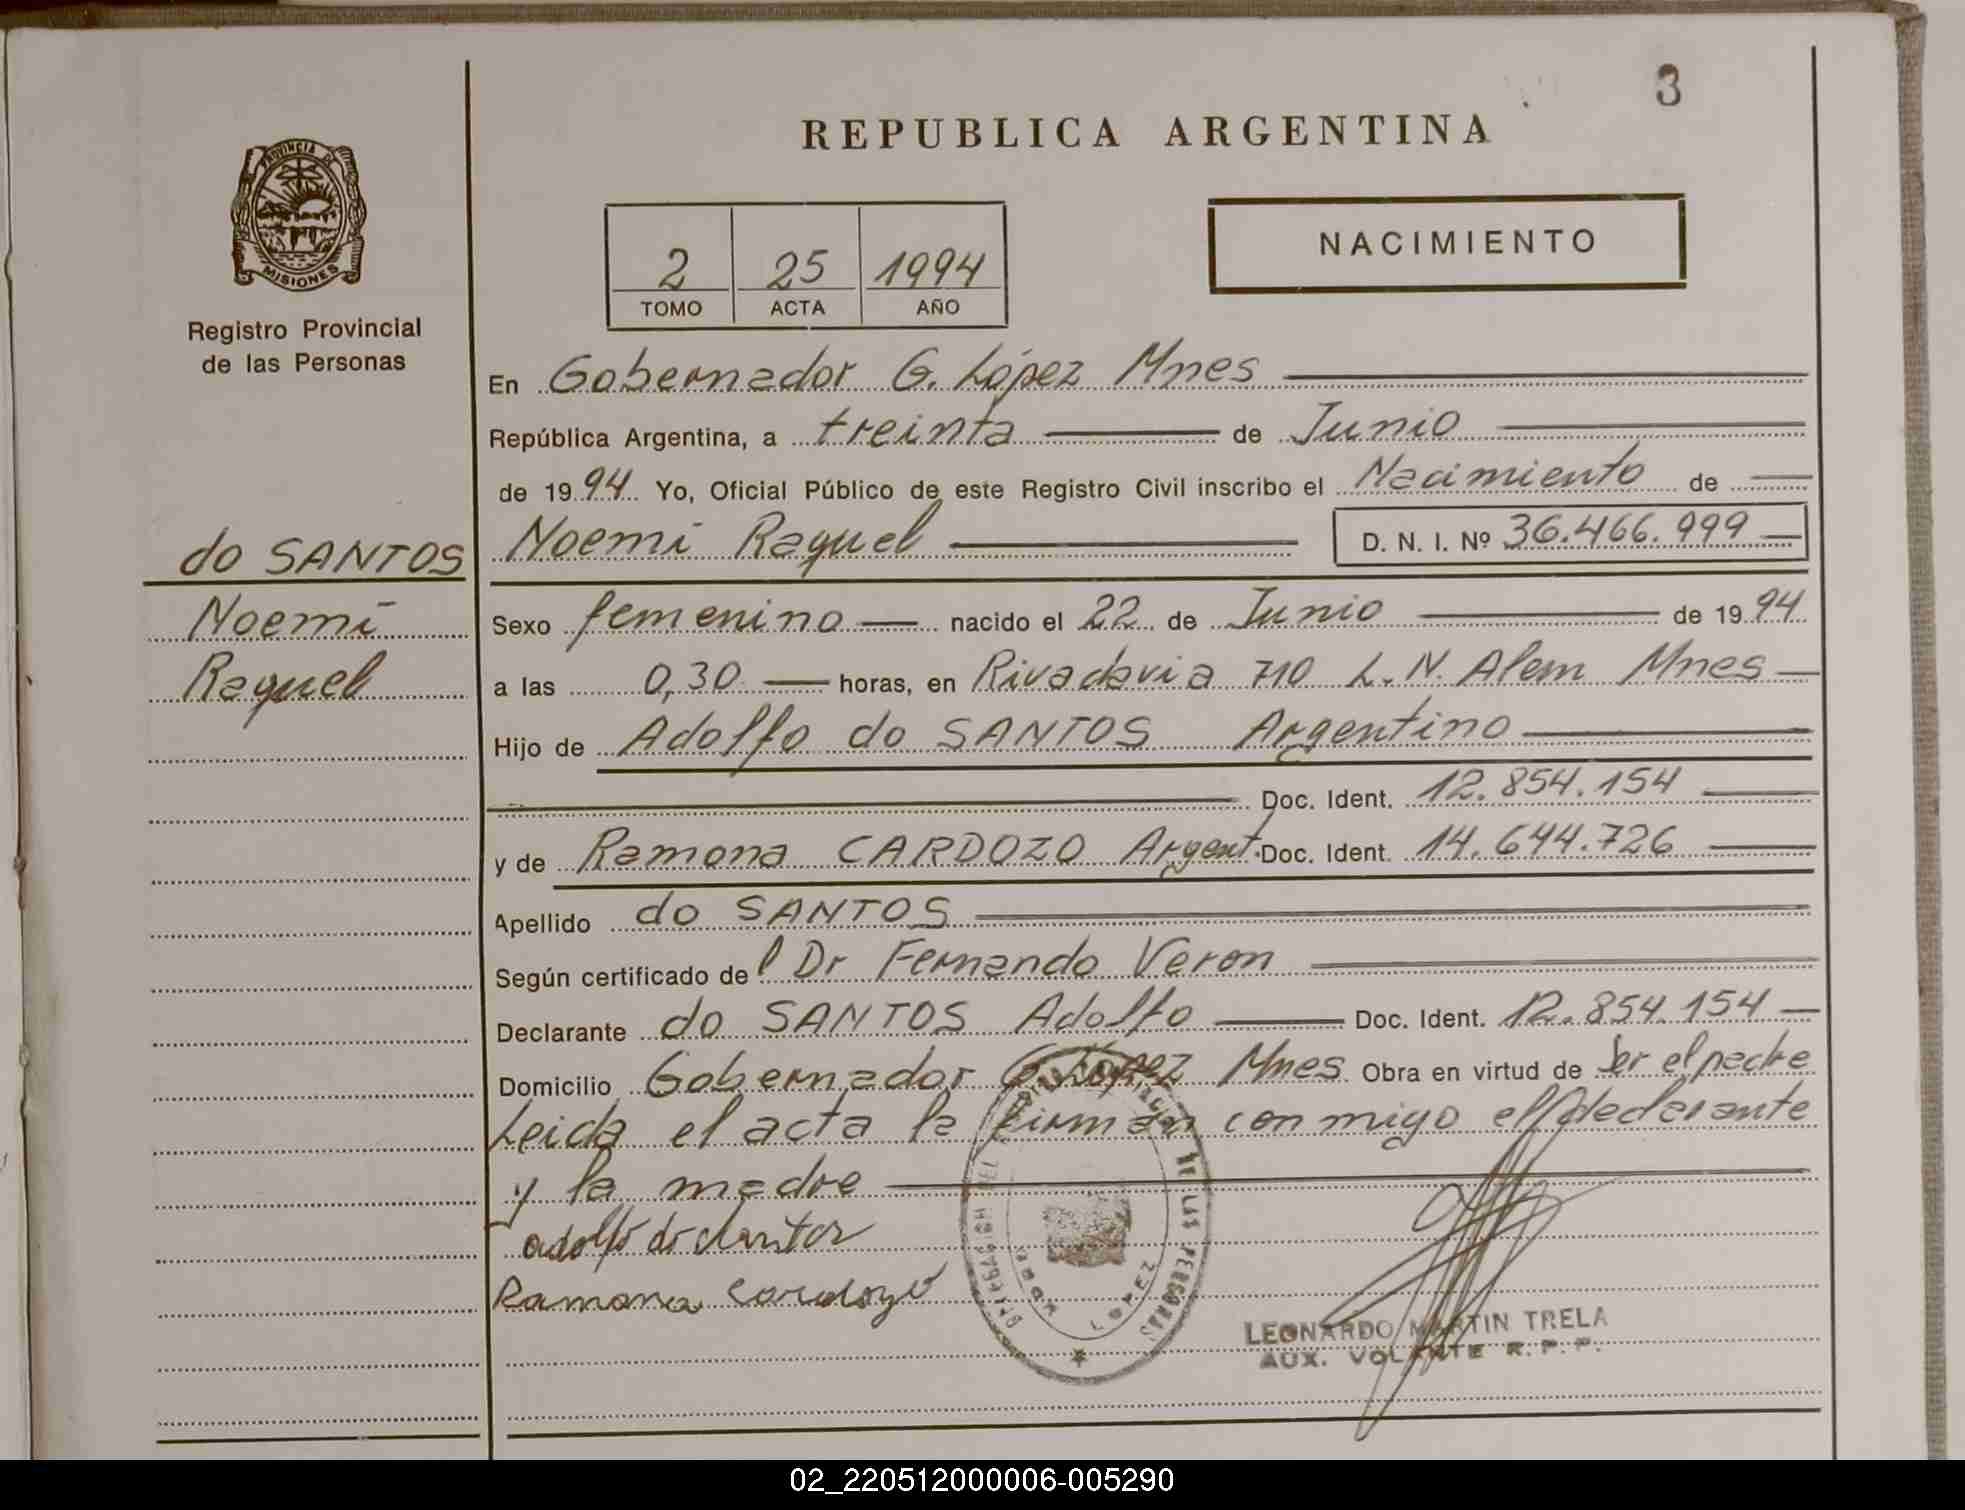 3
REPUBLICA ARGENTINA
PROVINCIA DE
MISIONES
Registro Provincial
de las Personas
2 25 1994
TOMO ACTA AÑO
NACIMIENTO
En Gobernador G. López Mnes
República Argentina, a treinta de Junio
de 1994 Yo, Oficial Público de este Registro Civil inscribo el Nacimiento de
do SANTOS
Noemí
Raquel
Noemí Raquel D. N. I. Nº 36.466.999
Sexo femenino nacido el 22 de Junio de 1994
a las 0,30 horas, en Rivadavia 710 L. N. Alem Mnes
Hijo de Adolfo do SANTOS Argentino
Doc. Ident. 12.854.154
y de Ramona CARDOZO Argent. Doc. Ident. 14.644.726
Apellido do SANTOS
Según certificado del Dr Fernando Veron
Declarante do SANTOS Adolfo Doc. Ident. 12.854.154
Domicilio Gobernador G. López Mnes Obra en virtud de Ser el padre
Leida el acta la firman conmigo el declarante
y la madre
adolfo do santos
Ramona Cardozo
DE LAS PERSONAS
LOPEZ
LEONARDO MARTIN TRELA
AUX. VOLANTE R.P.P.
02_220512000006-005290